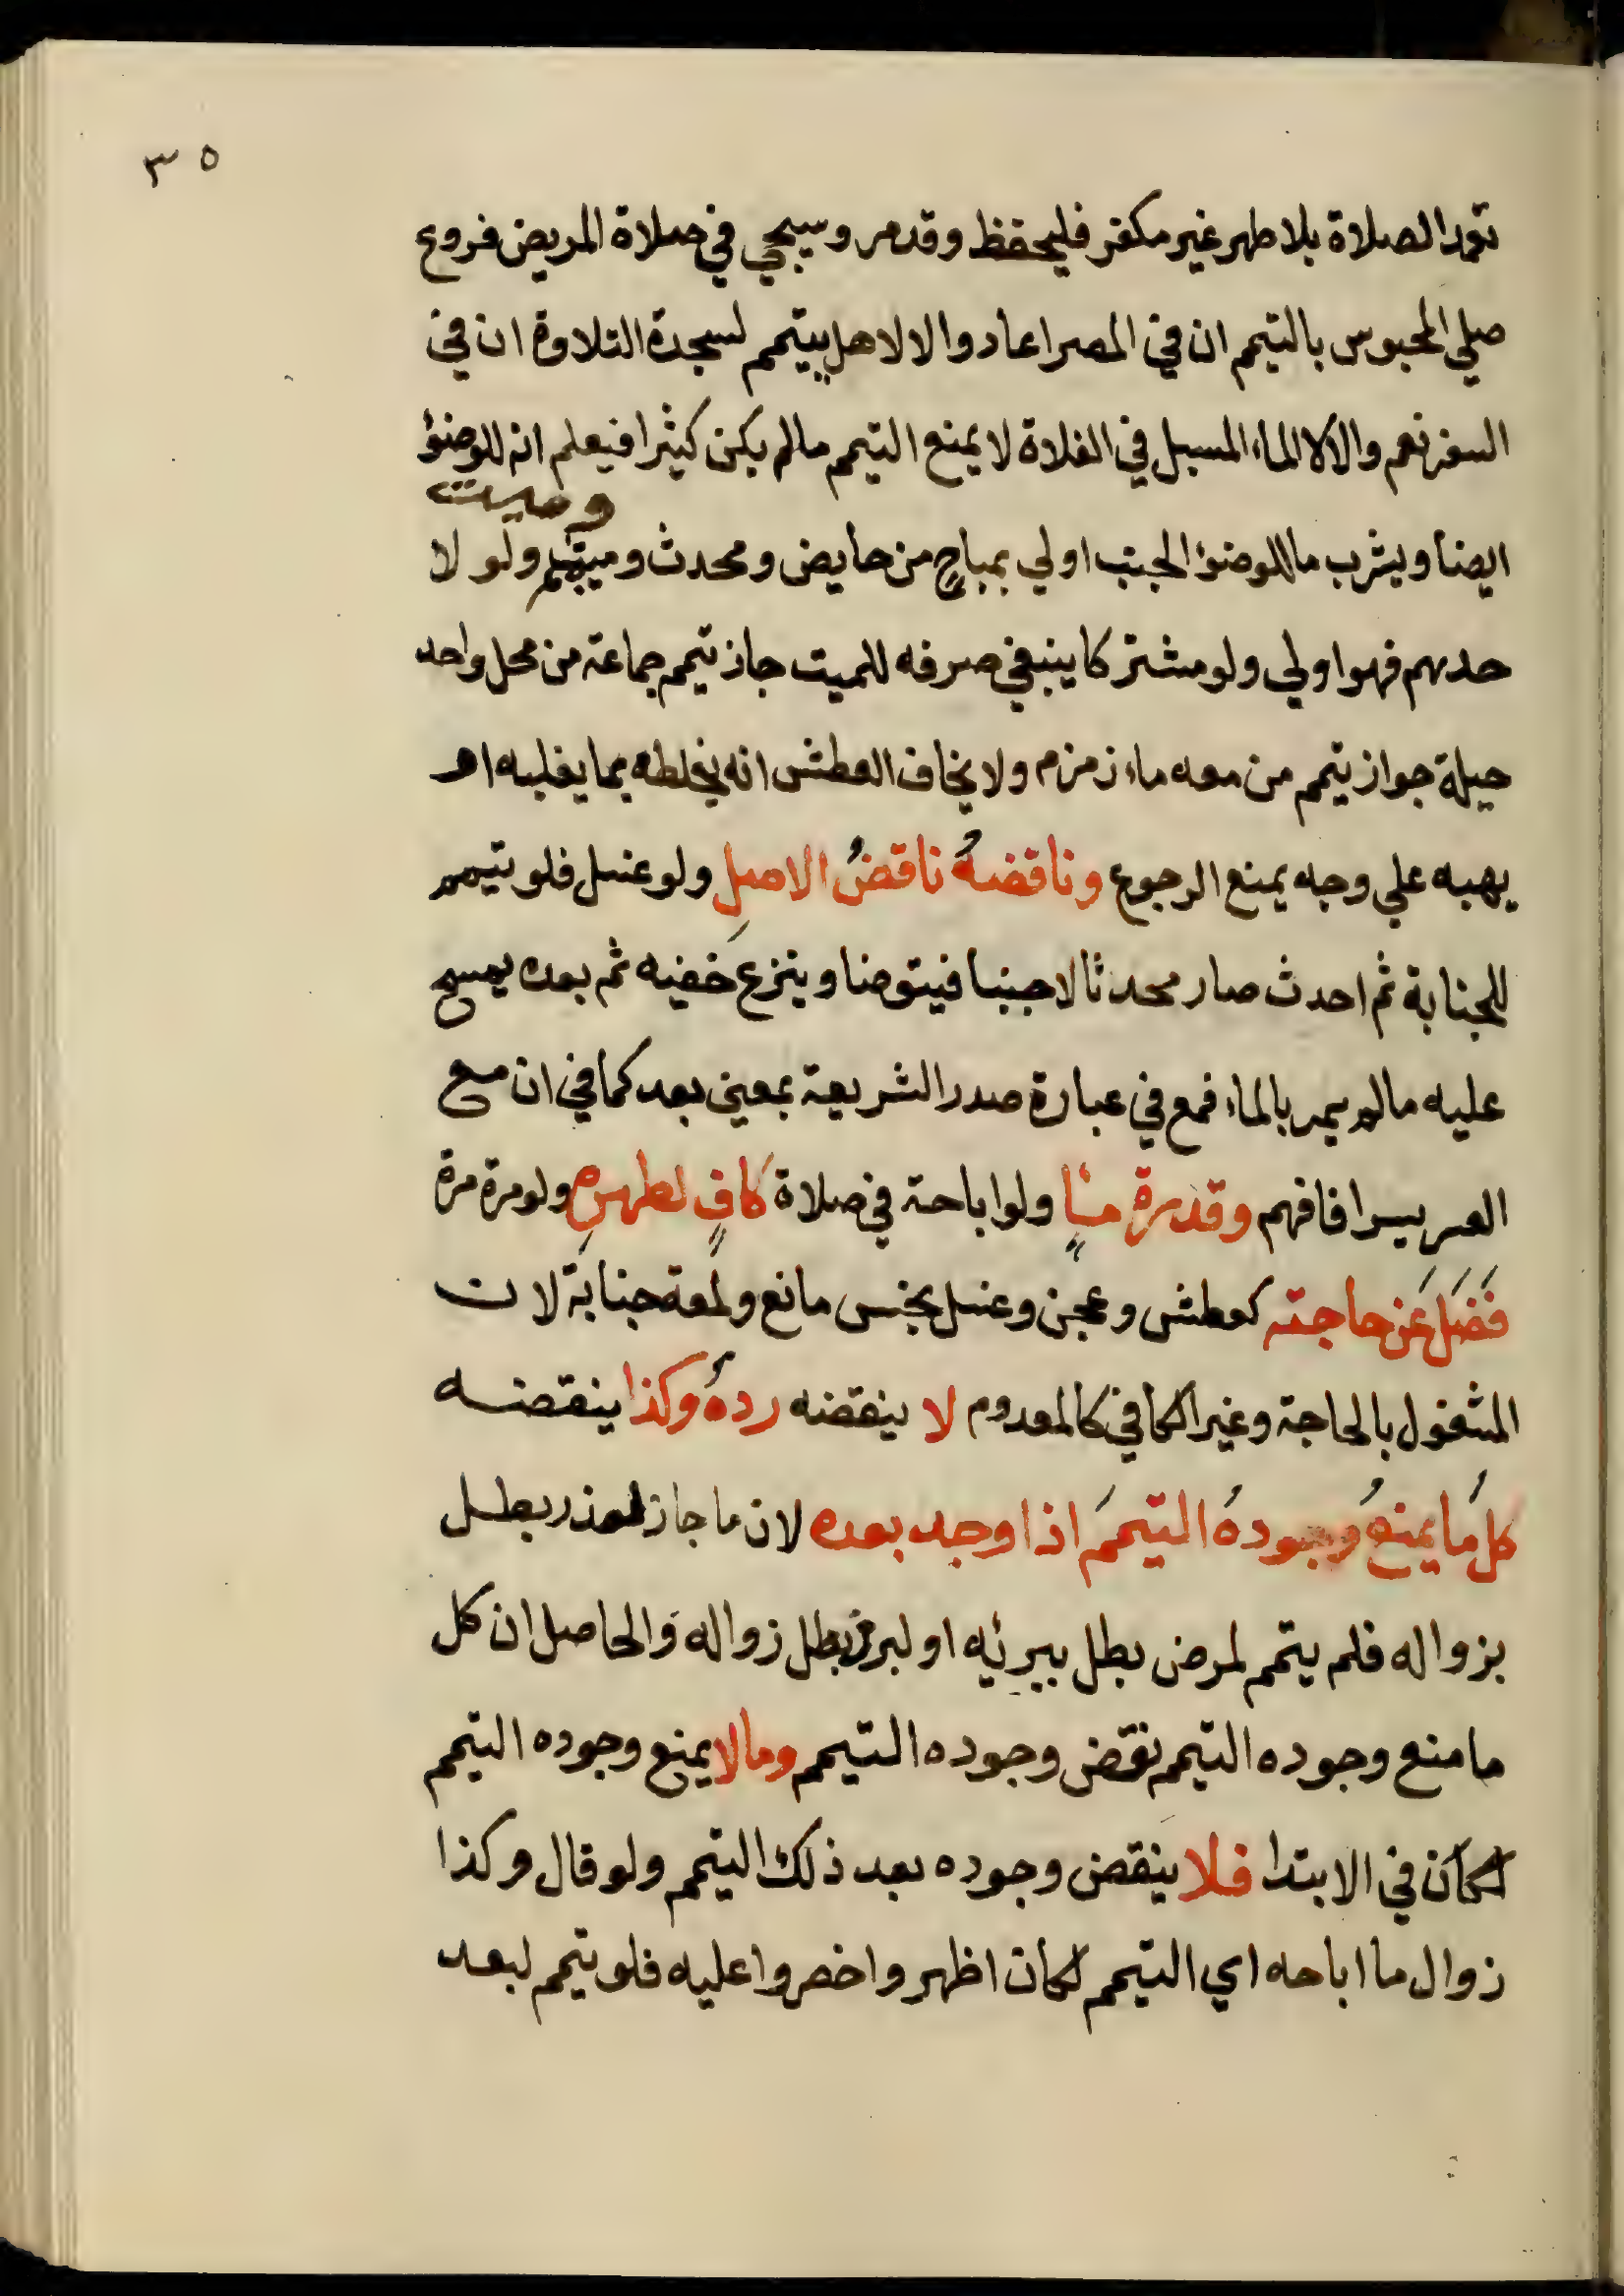 ٣٥
تعمد الصلاة بلا طهر غير مكفر فليحفظ وقد مر وسيجي في صلاة المريض فروع
صلي المحبوس بالتيمم ان في المصر اعاد والا لا هل يتيمم لسجدة التلاوة ان في
السفر نعم والا لا الماء المسبل في الفلاة لا يمنع التيمم مالم يكن كثيرا فيعلم انه للوضؤ
وميت
ايضا ويشرب ما للوضؤ الجنب اولي بمباحٍ من حايض ومحدث وميتيمم ولو لا
حدهم فهو اولي ولو مشتركا ينبغي صرفه للميت جاز تيمم جماعة من محل واحد
حيلة جواز تيمم من معه ماء زمزم ولا يخاف العطش انه يخلطه بما يغلبه او
يهبه علي وجه يمنع الرجوع وناقضهُ ناقضُ الاصلِ ولو غسل فلو تيمم
للجنابة ثم احدث صار محدثا لا جنبا فيتوضا وينزع خفيه ثم بعده يمسح
عليه مالم يمر بالماء فمع في عبارة صدر الشريعة بمعني بعد كما في ان مع
العسر يسرا فافهم وقدرة مـاٍ ولو اباحة في صلاة كافٍ لطهرهِ ولو مرة مرة
فَضَلَ عَن حاجته كعطش وعجن وغسل نجس مانع ولمعة جنابة لان
المشغول بالحاجة وغير الكافي كالمعدوم لا ينقضه ردةٌ وكذا ينقضه
كلُ ما يمنعُ وجودهُ التيممَ اذا وجد بعده لان ما جاز لعذر بطل
بزواله فلم يتمم لمرض بطل ببرئه او لبرد بطل زواله والحاصل ان كل
ما منع وجوده التيمم نقض وجوده التيمم وما لا يمنع وجوده التيمم
لكان في الابتدا فلا ينقض وجوده بعد ذلك التيمم ولو قال وكذا
زوال ما اباحه اي التيمم لكان اظهر واخصر واعليه فلو تيمم لبعد